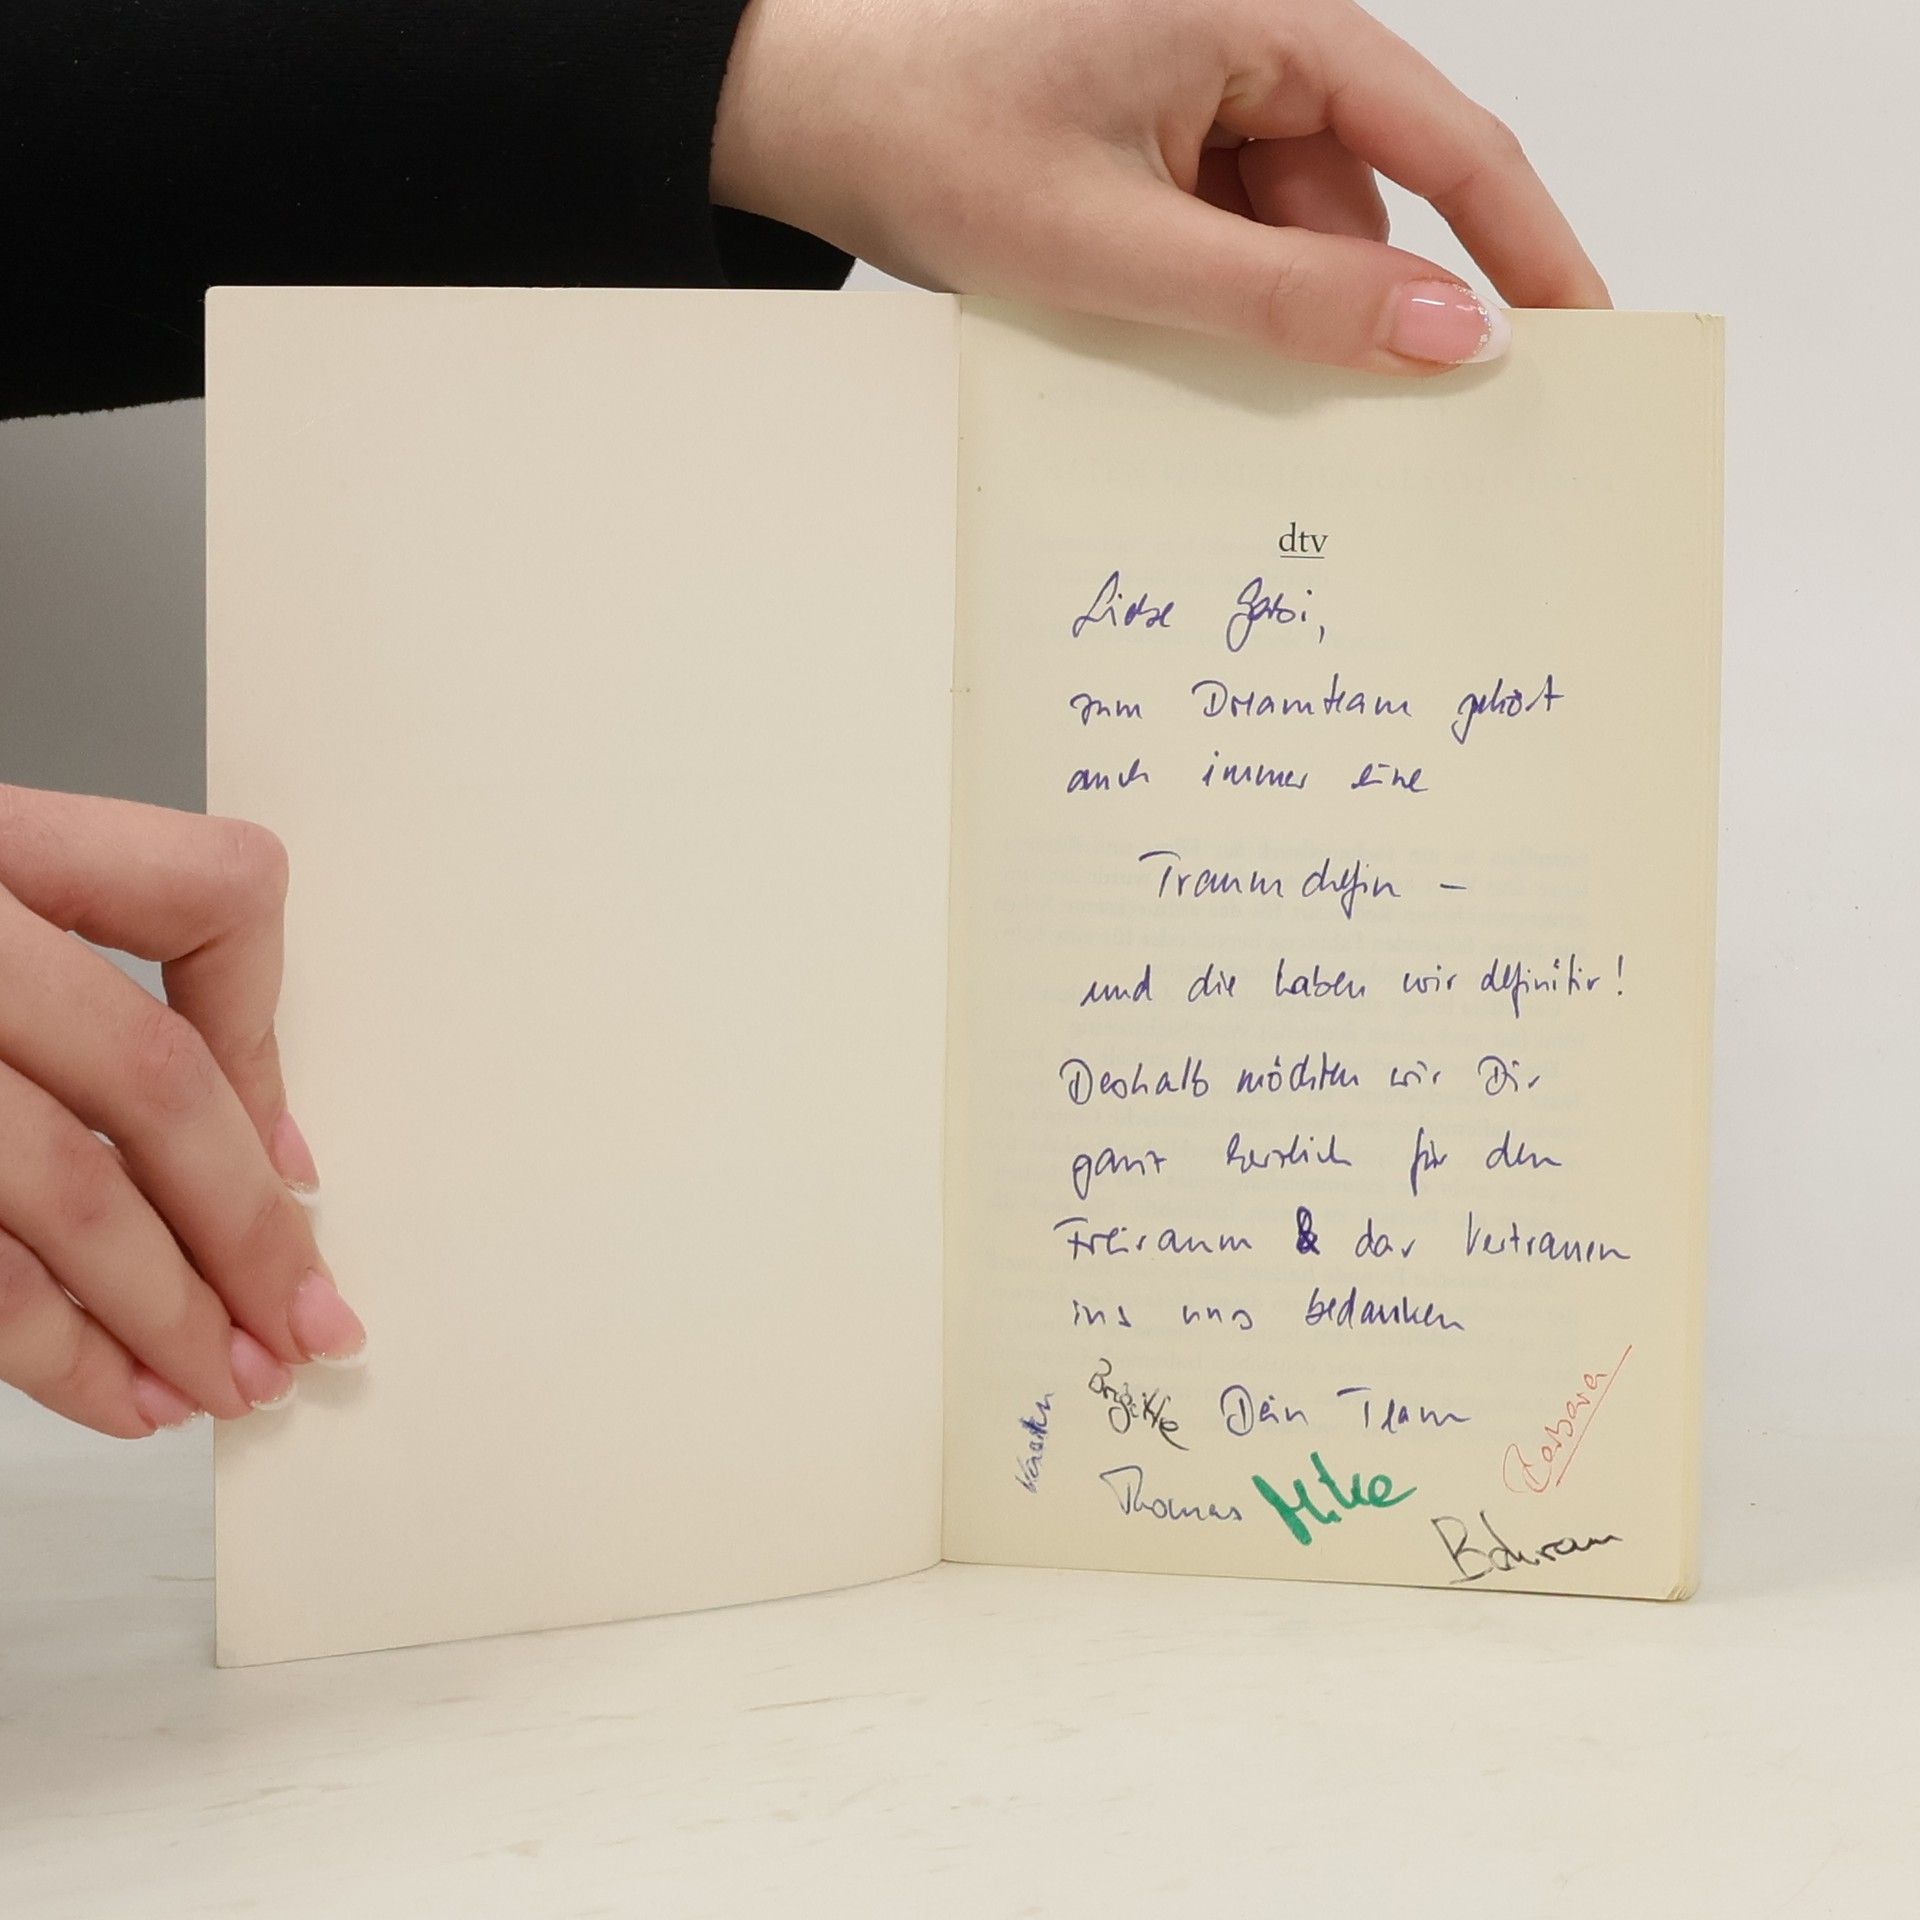 dtv
Liebe Gabi,
zum Dreamteam gehört
auch immer eine
Traumchefin –
und die haben wir definitiv!
Deshalb möchten wir Dir
ganz herzlich für den
Freiraum & das Vertrauen
ins uns bedanken
Brigitte Dein Team
Barbara
Thomas Mike
Bahram